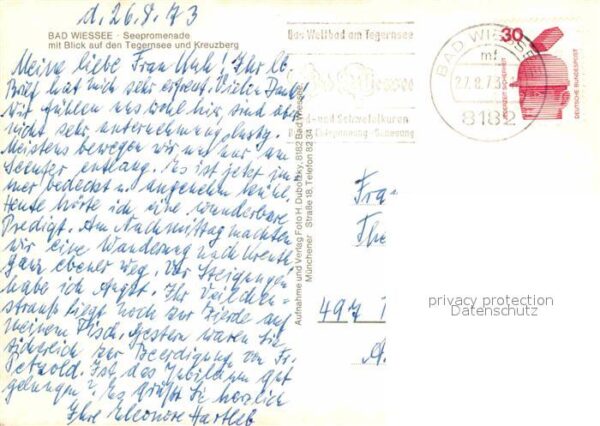 d. 26.8.73
BAD WIESSEE - Seepromenade
mit Blick auf den Tegernsee und Kreuzberg
Meine liebe Frau Uhl! Ihr lb.
Brief hat mich sehr erfreut. Vielen Dank.
Wir fühlen uns wohl hier, sind aber
nicht sehr unternehmungslustig.
Meistens bewegen wir uns nur am
Seeufer entlang. Es ist jetzt im-
mer bedeckt u. angenehm kühl.
Heute hörte ich eine wunderbare
Predigt. Am Nachmittag machten
wir eine Wanderung nach Kreuth
ganz ebener Weg. Vor Steigungen
habe ich Angst. Ihr Veilchen-
strauß liegt noch zur Zierde auf
meinem Tisch. Gestern waren Sie
sicherlich zur Beerdigung von Fr.
Ist das Jubiläum gut
gelungen? Es grüßt Sie herzlich
Ihre Eleonore Hartleb
Aufnahme und Verlag Foto H. Dubotzky, 8182 Bad Wiessee
Münchener Straße 18, Telefon 82 34
Das Weltbad am Tegernsee
Bad Wiessee
Jod- und Schwefelkuren
Entspannung - Genesung
BAD WIESSEE
mf
27.8.73
8182
30
JEDERZEIT SICHERHEIT
DEUTSCHE BUNDESPOST
Fra
The
497
privacy protection
Datenschutz